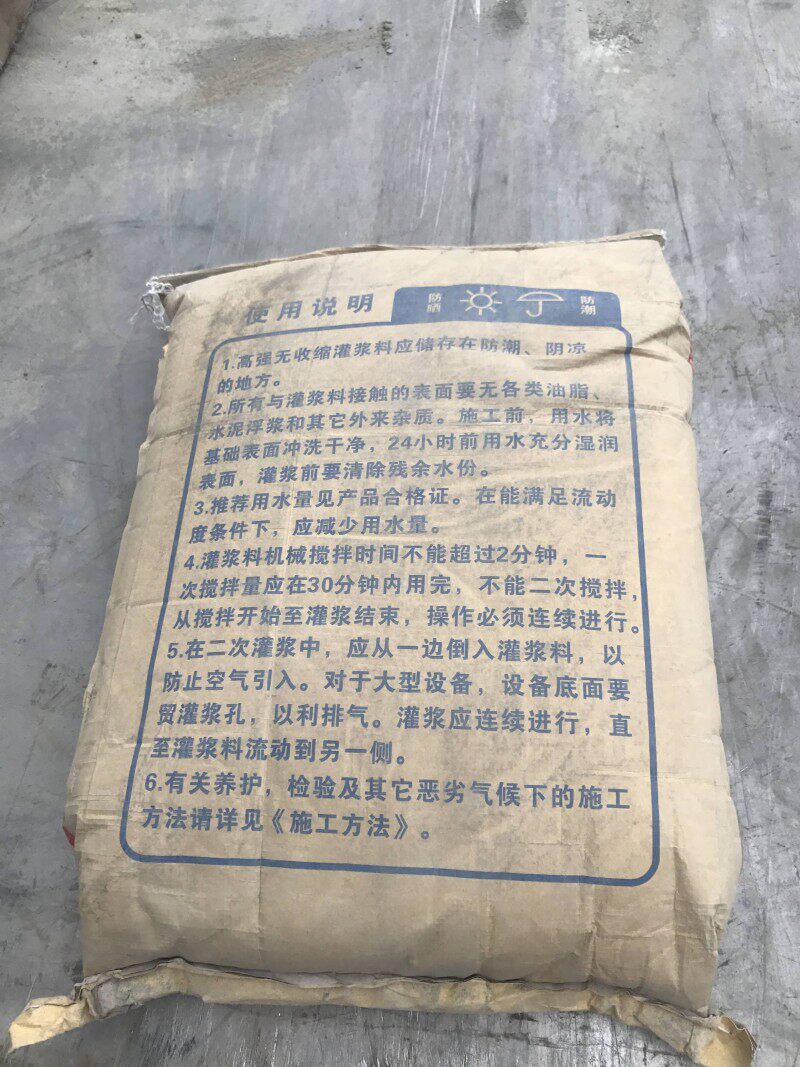 使用说明
防晒
防潮
1.高强无收缩灌浆料应储存在防潮、阴凉
的地方。
2.所有与灌浆料接触的表面要无各类油脂、
水泥浮浆和其它外来杂质。施工前，用水将
基础表面冲洗干净，24小时前用水充分湿润
表面，灌浆前要清除残余水份。
3.推荐用水量见产品合格证。在能满足流动
度条件下，应减少用水量。
4.灌浆料机械搅拌时间不能超过2分钟，一
次搅拌量应在30分钟内用完，不能二次搅拌，
从搅拌开始至灌浆结束，操作必须连续进行。
5.在二次灌浆中，应从一边倒入灌浆料，以
防止空气引入。对于大型设备，设备底面要
贸灌浆孔，以利排气。灌浆应连续进行，直
至灌浆料流动到另一侧。
6.有关养护，检验及其它恶劣气候下的施工
方法请详见《施工方法》。